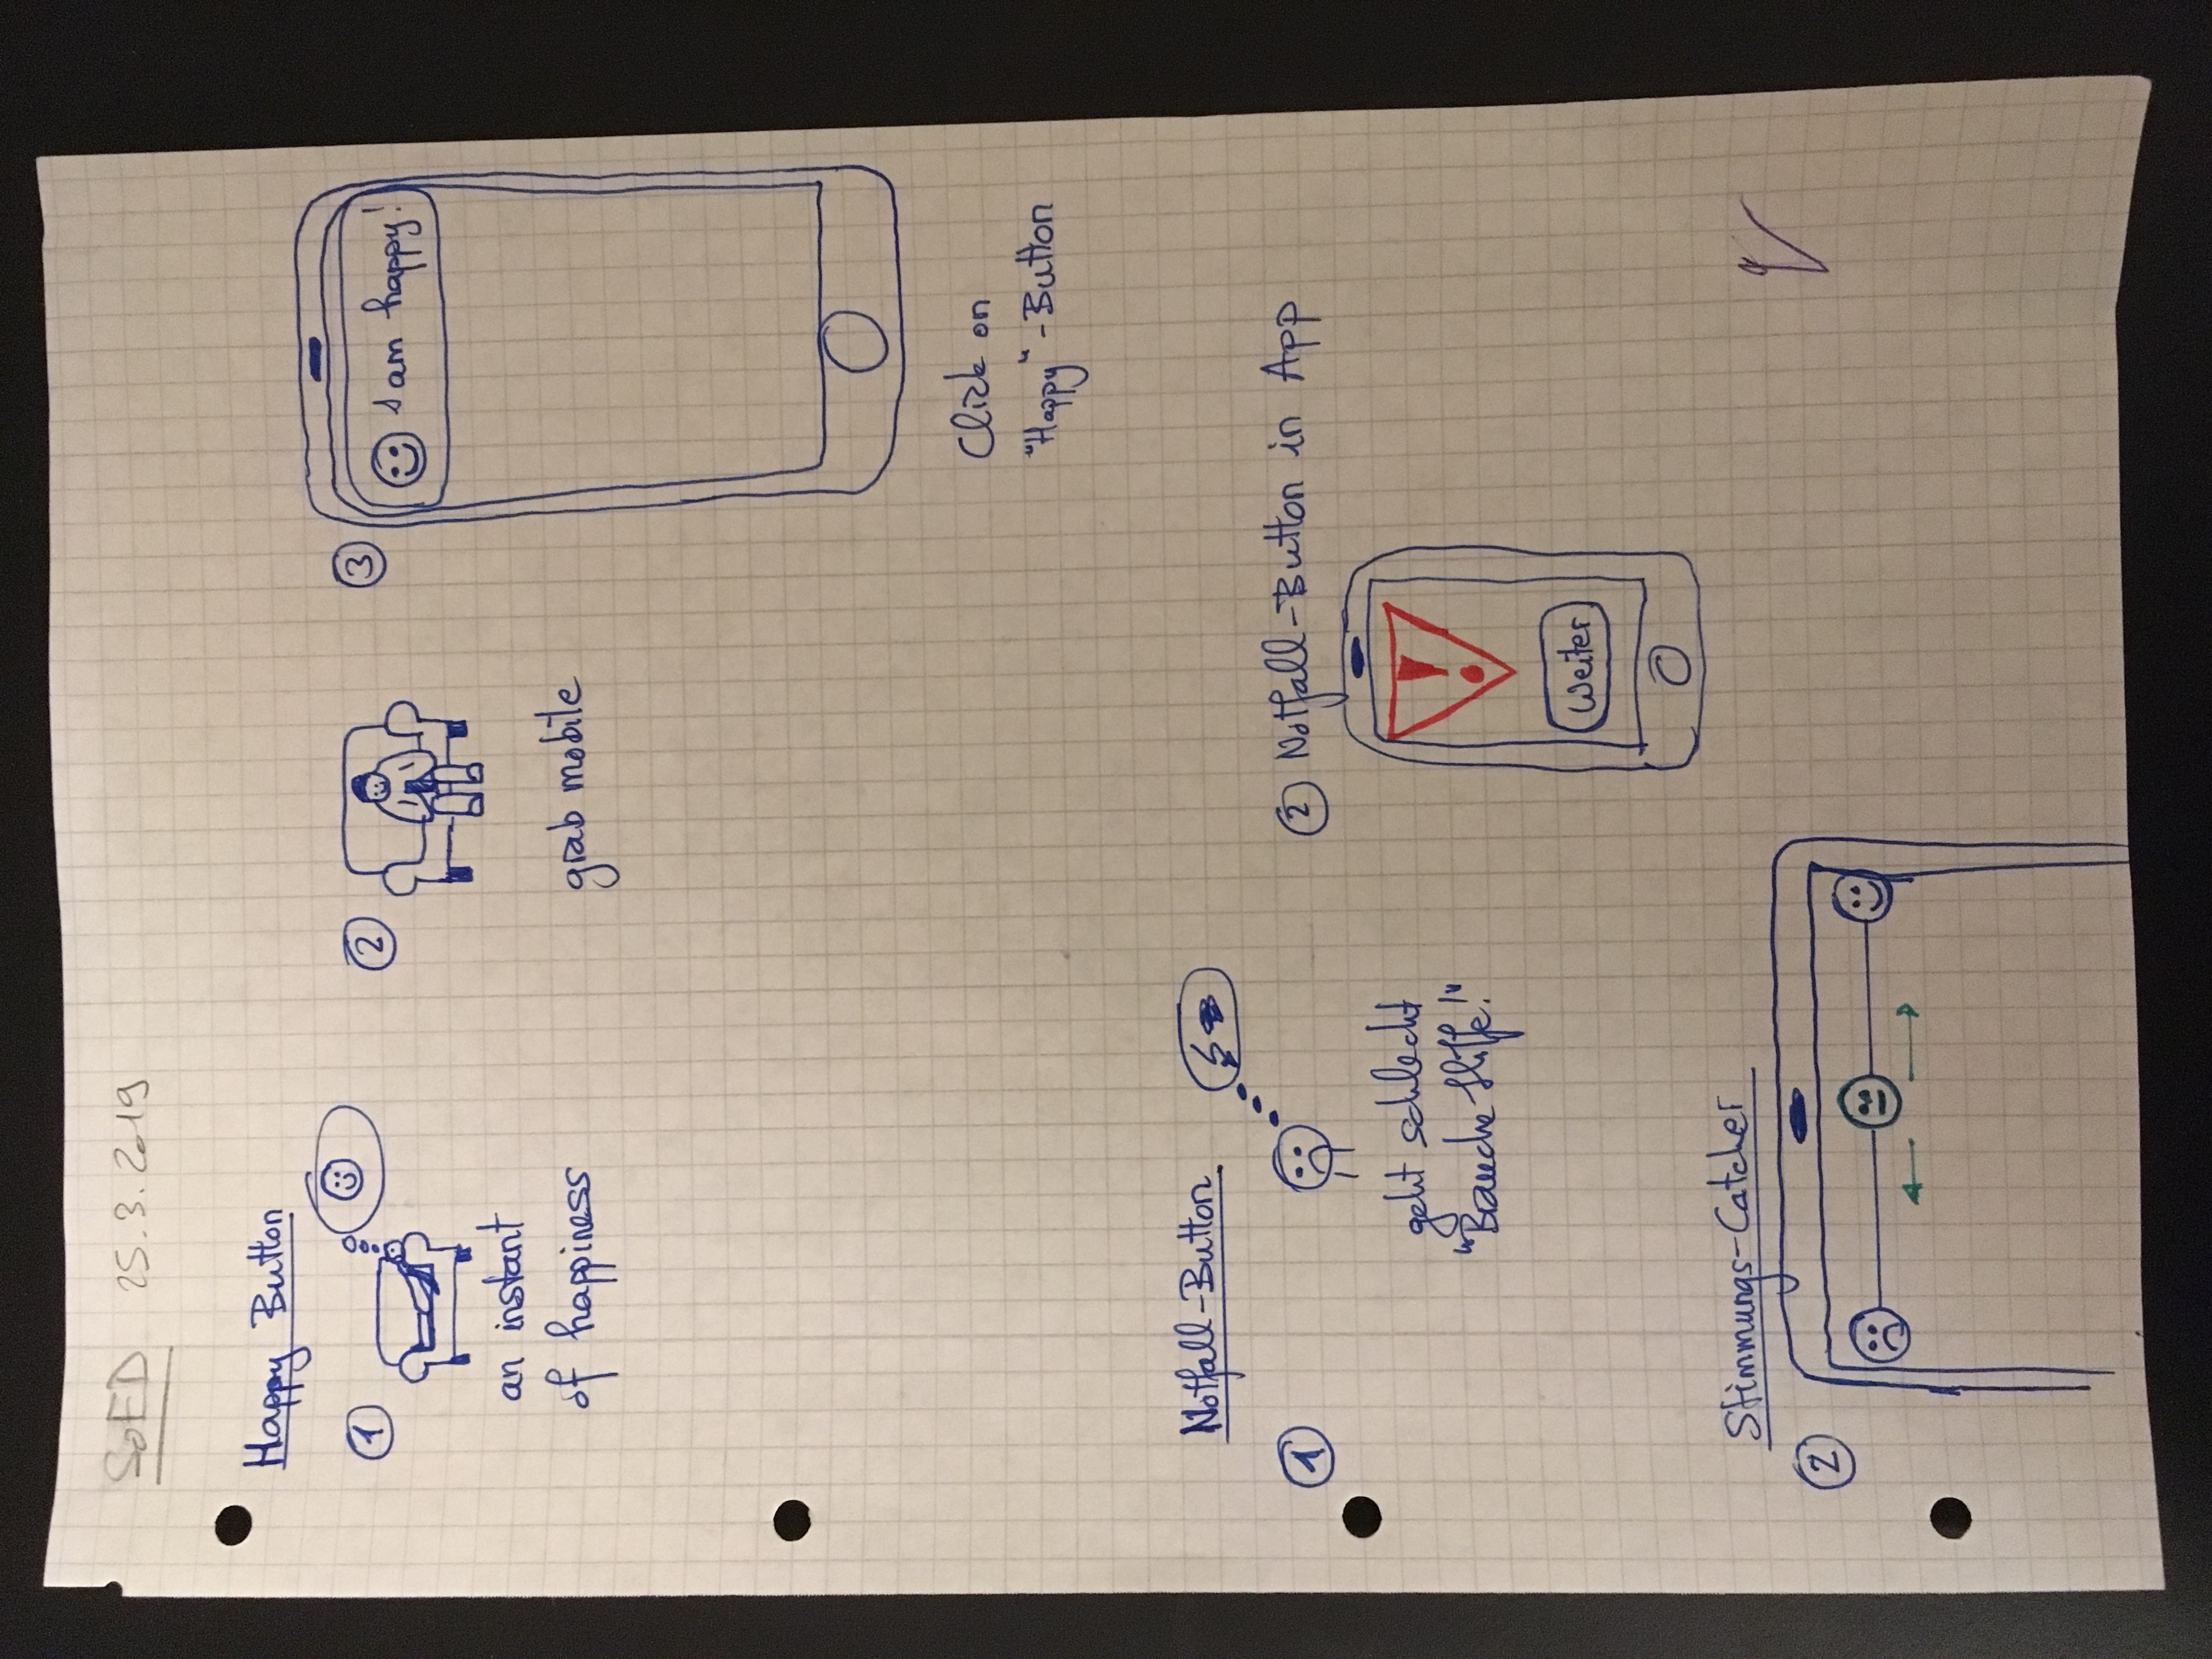 SoED 25.3.2019
Happy Button
1
an instant
of happiness
2
grab mobile
3
I am happy!
Click on
"Happy"-Button
Notfall-Button
1
geht schlecht
"Brauche Hilfe!"
2 Notfall-Button in App
!
Weiter
Stimmungs-Catcher
2